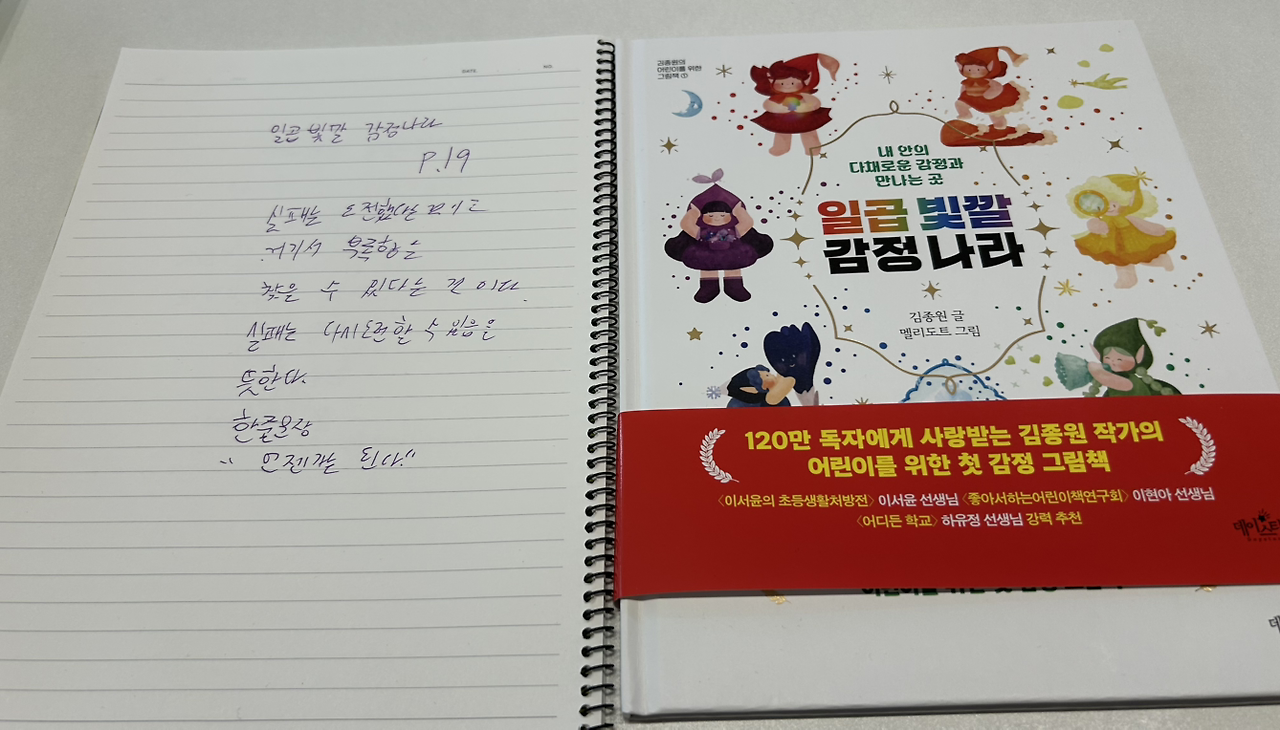 DATE.
NO.
일곱 빛깔 감정나라
P.19
실패는 도전했다는 것이고
거기서 부족함을
찾을 수 있다는 것 이다.
실패는 다시도전할 수 있음을
뜻한다.
한줄문장
" 언젠가는 된다."
김종원의
어린이를 위한
그림책 ①
내 안의
다채로운 감정과
만나는 곳
일곱 빛깔
감정 나라
김종원 글
멜리도트 그림
120만 독자에게 사랑받는 김종원 작가의
어린이를 위한 첫 감정 그림책
〈이서윤의 초등생활처방전〉 이서윤 선생님 〈좋아서하는어린이책연구회〉 이현아 선생님
〈어디든 학교〉 하유정 선생님 강력 추천
데이스타